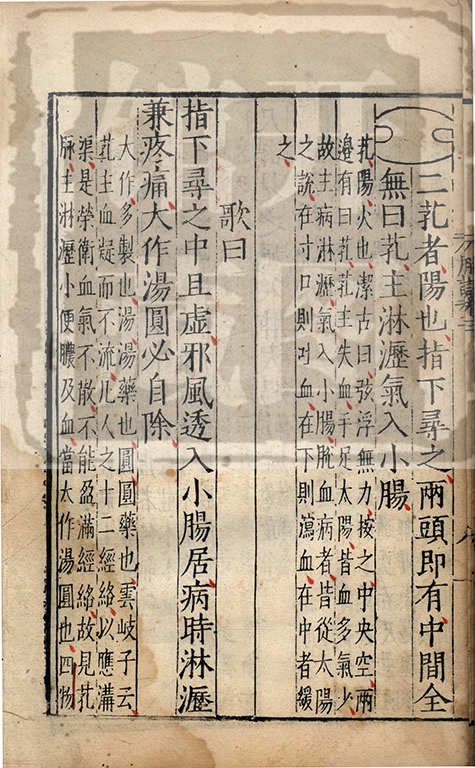 二芤者陽也指下尋之兩頭即有中間全
無曰芤主淋瀝氣入小腸
芤陽火也潔古曰弦浮無力按之中央空兩
邊有曰芤芤主失血手足太陽昔血多氣少
故主病淋瀝氣入小腸脫血病者昔從太陽
之說在寸口則吐血在下則瀉血在中者緩
之
歌曰
指下尋之中且虛邪風透入小腸居病時淋瀝
兼疼痛大作湯圓必自除
大作多製也湯湯藥也圓圓藥也雲岐子云
芤主血凝而不流凡人之十二經絡以應溝
渠是榮衛血氣不散不能盈滿經絡故見芤
脉主淋瀝小便膿及血當大作湯圓也四物